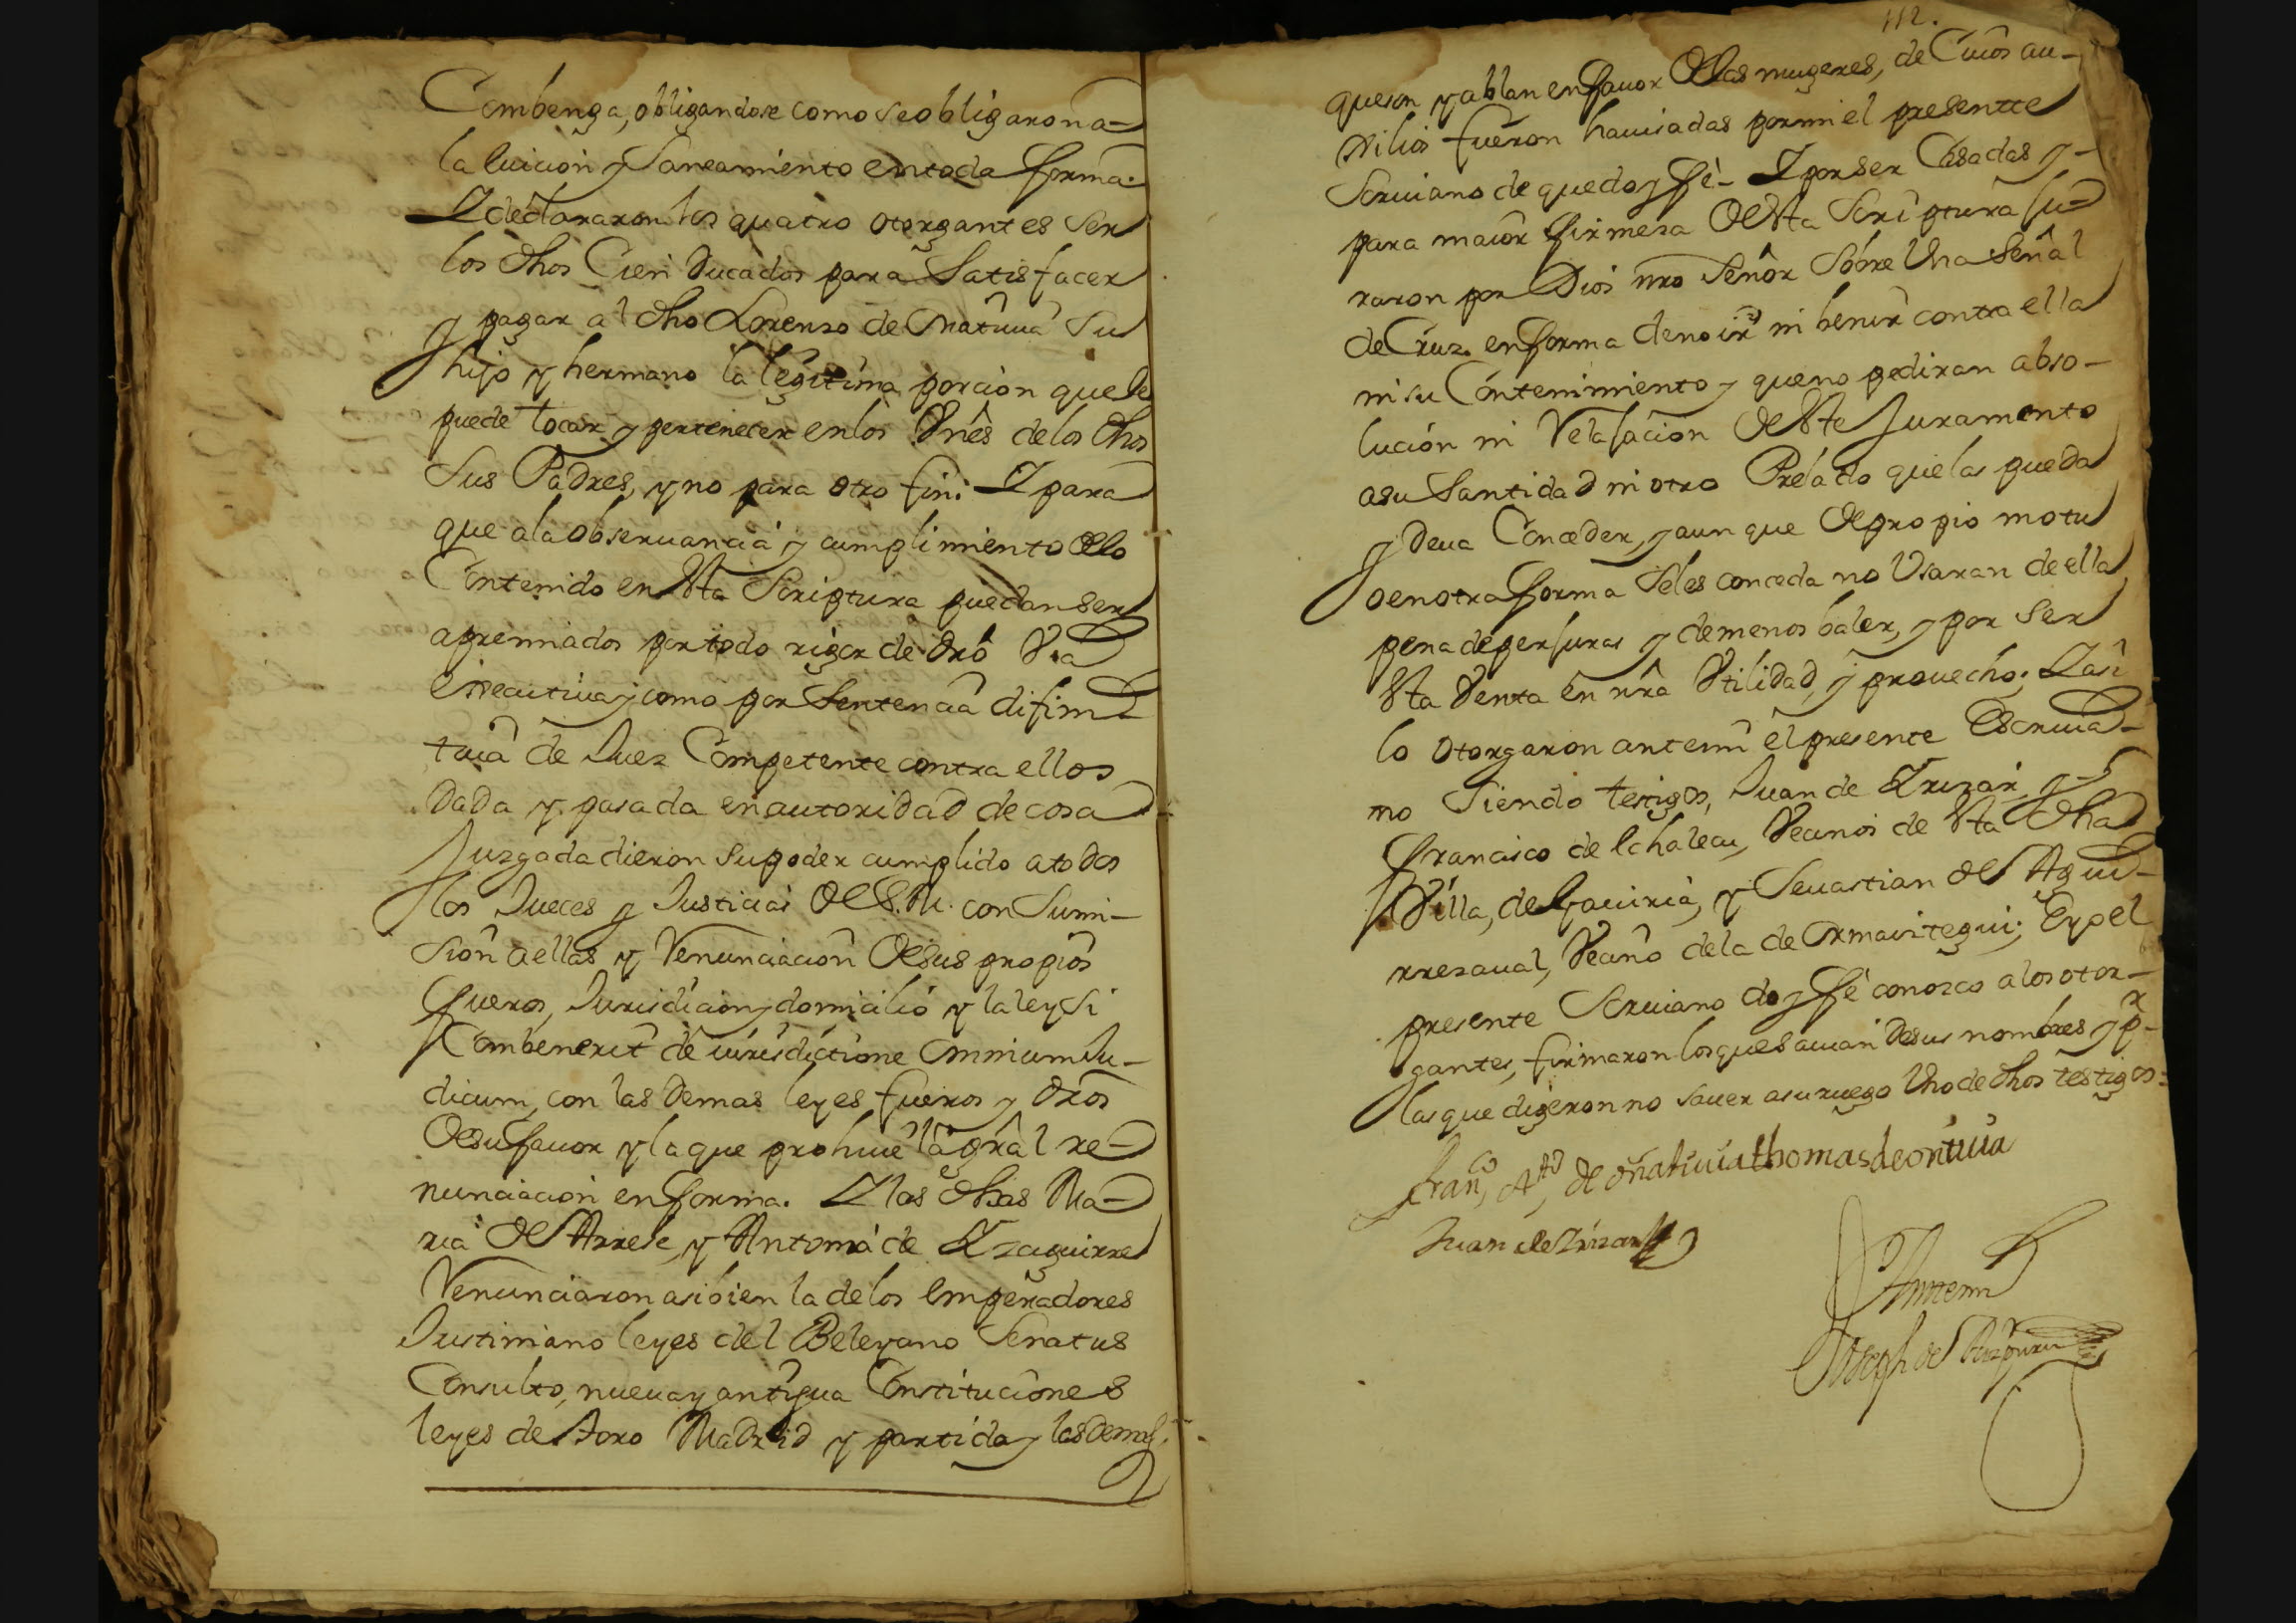 Combenga, obligandose como se obligaron a
la luicion y Saneamiento en toda forma.
Y declararon los quatro otorgantes ser
los dhos Cien Ducados para Satisfacer
y pagar al dho Lorenzo de Onativia Su
hijo y hermano la legitima porcion que le
puede tocar y pertenecer en los Vnes de los dhos
Sus Padres, y no para otro fin: Y para
que a la observancia y cumplimiento de lo
Contenido en esta Scriptura puedan ser
apremiados por todo rigor de dro Via
executiva y como por Sentencia difini
tiva de Juez Competente contra ellos
dada y pasada en autoridad de cosa
Juzgada dieron su poder cumplido a todos
los Jueces y Justicias de S.M. con Sumi-
sion a ellas y Renunciacion de sus propios
fueros, Jurisdicion y domicilio y la ley Si
Combenerit de iurisdictione omnium Ju-
dicum, con las demas leyes fueros y dros
de su favor y la que prohive la gral re
nunciacion en forma. Y las dhas Ma
ria de Arrese, y Antonia de Yzaguirre
Renunciaron asi bien la de los Emperadores
Justiniano leyes del Beleyano Senatus
Consulto, nueva y antigua Constituciones
leyes de Toro Madrid y partida y las demas
112.
que son y ablan en favor de las mugeres, de Cuios au-
xilios fueron haviadas por mi el presentte
Scriviano de que doy fe - Y por ser Casadas y -
para maior firmesa de esta Scriptura ju
raron por Dios nro Señor Sobre Una Señal
de Cruz en forma de no ir ni benir contra ella
ni su Contenimiento y que no pediran abso-
lución ni Relajacion de este Juramento
a su Santidad ni otro Prelado que las pueda
y deva Conceder, y aun que de propio motu
o en otra forma Seles conceda no Usaran de ella
pena de perjuras y de menos baler, y por ser
esta Venta en nra Utilidad y provecho; Y asi
lo otorgaron ante mi el presente Escrivia-
no Siendo testigos, Juan de Yrizar, y
Francisco de Echalecu, Vecinos de esta dha
Villa, de Gaviria, y Sevastian de Agui
rrezaval, Vecino de la de Ormaiztegui; E yo el
presente Scriviano doy fe conozco a los otor-
gantes, firmaron los que savian de sus nombres y pr
las que digeron no saver a su ruego Uno de dhos testigos=
Franco Anto de oñativia thomas de onativia
Juan de Yrizar
Antemi
Joseph de